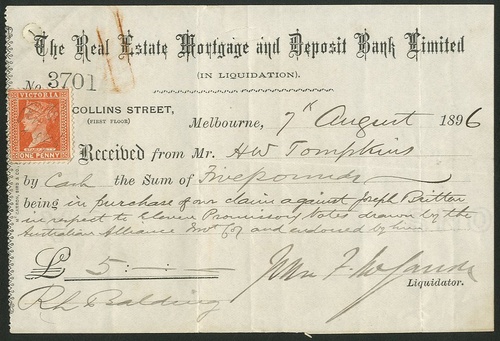 The Real Estate Mortgage and Deposit Bank Limited
(IN LIQUIDATION).
No. 3701
COLLINS STREET,
(FIRST FLOOR)
Melbourne, 7th August 1896
VICTORIA
ONE PENNY
Received from Mr. HW Tompkins
by Cash the Sum of Five pounds
being in purchase of our claim against Joseph Britton
in respect to Eleven Promissory Notes drawn by the
Australian Alliance Invt Co and endorsed by him
£ 5 : - : -
John F
Liquidator.
Balding